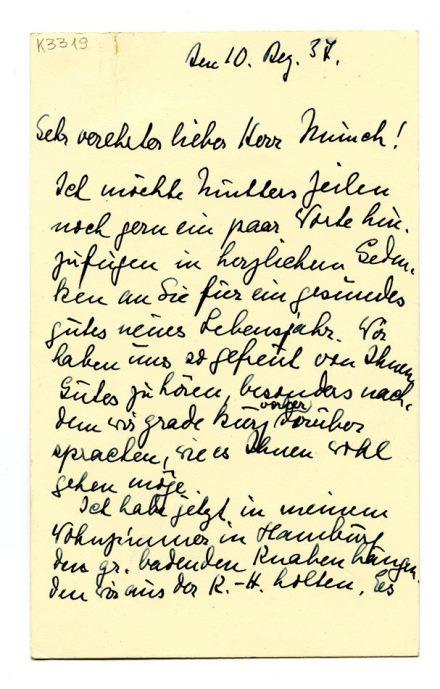 K3319
Den 10. Dez. 37.
Sehr verehrter lieber Herr Munch!
Ich möchte Mutters Zeilen
noch gern ein paar Worte hin-
zufügen in herzlichem Geden-
ken an Sie für ein gesundes
gutes neues Lebensjahr. Wir
haben uns so gefreut von Ihnen
Gutes zu hören, besonders nach-
dem wir grade kurz vorher darüber
sprachen, wie es Ihnen wohl
gehen möge.
Ich habe jetzt in meinem
Wohnzimmer in Hamburg
den gr. badenden Knaben hängen,
den wir aus der K.-H. holten. Es